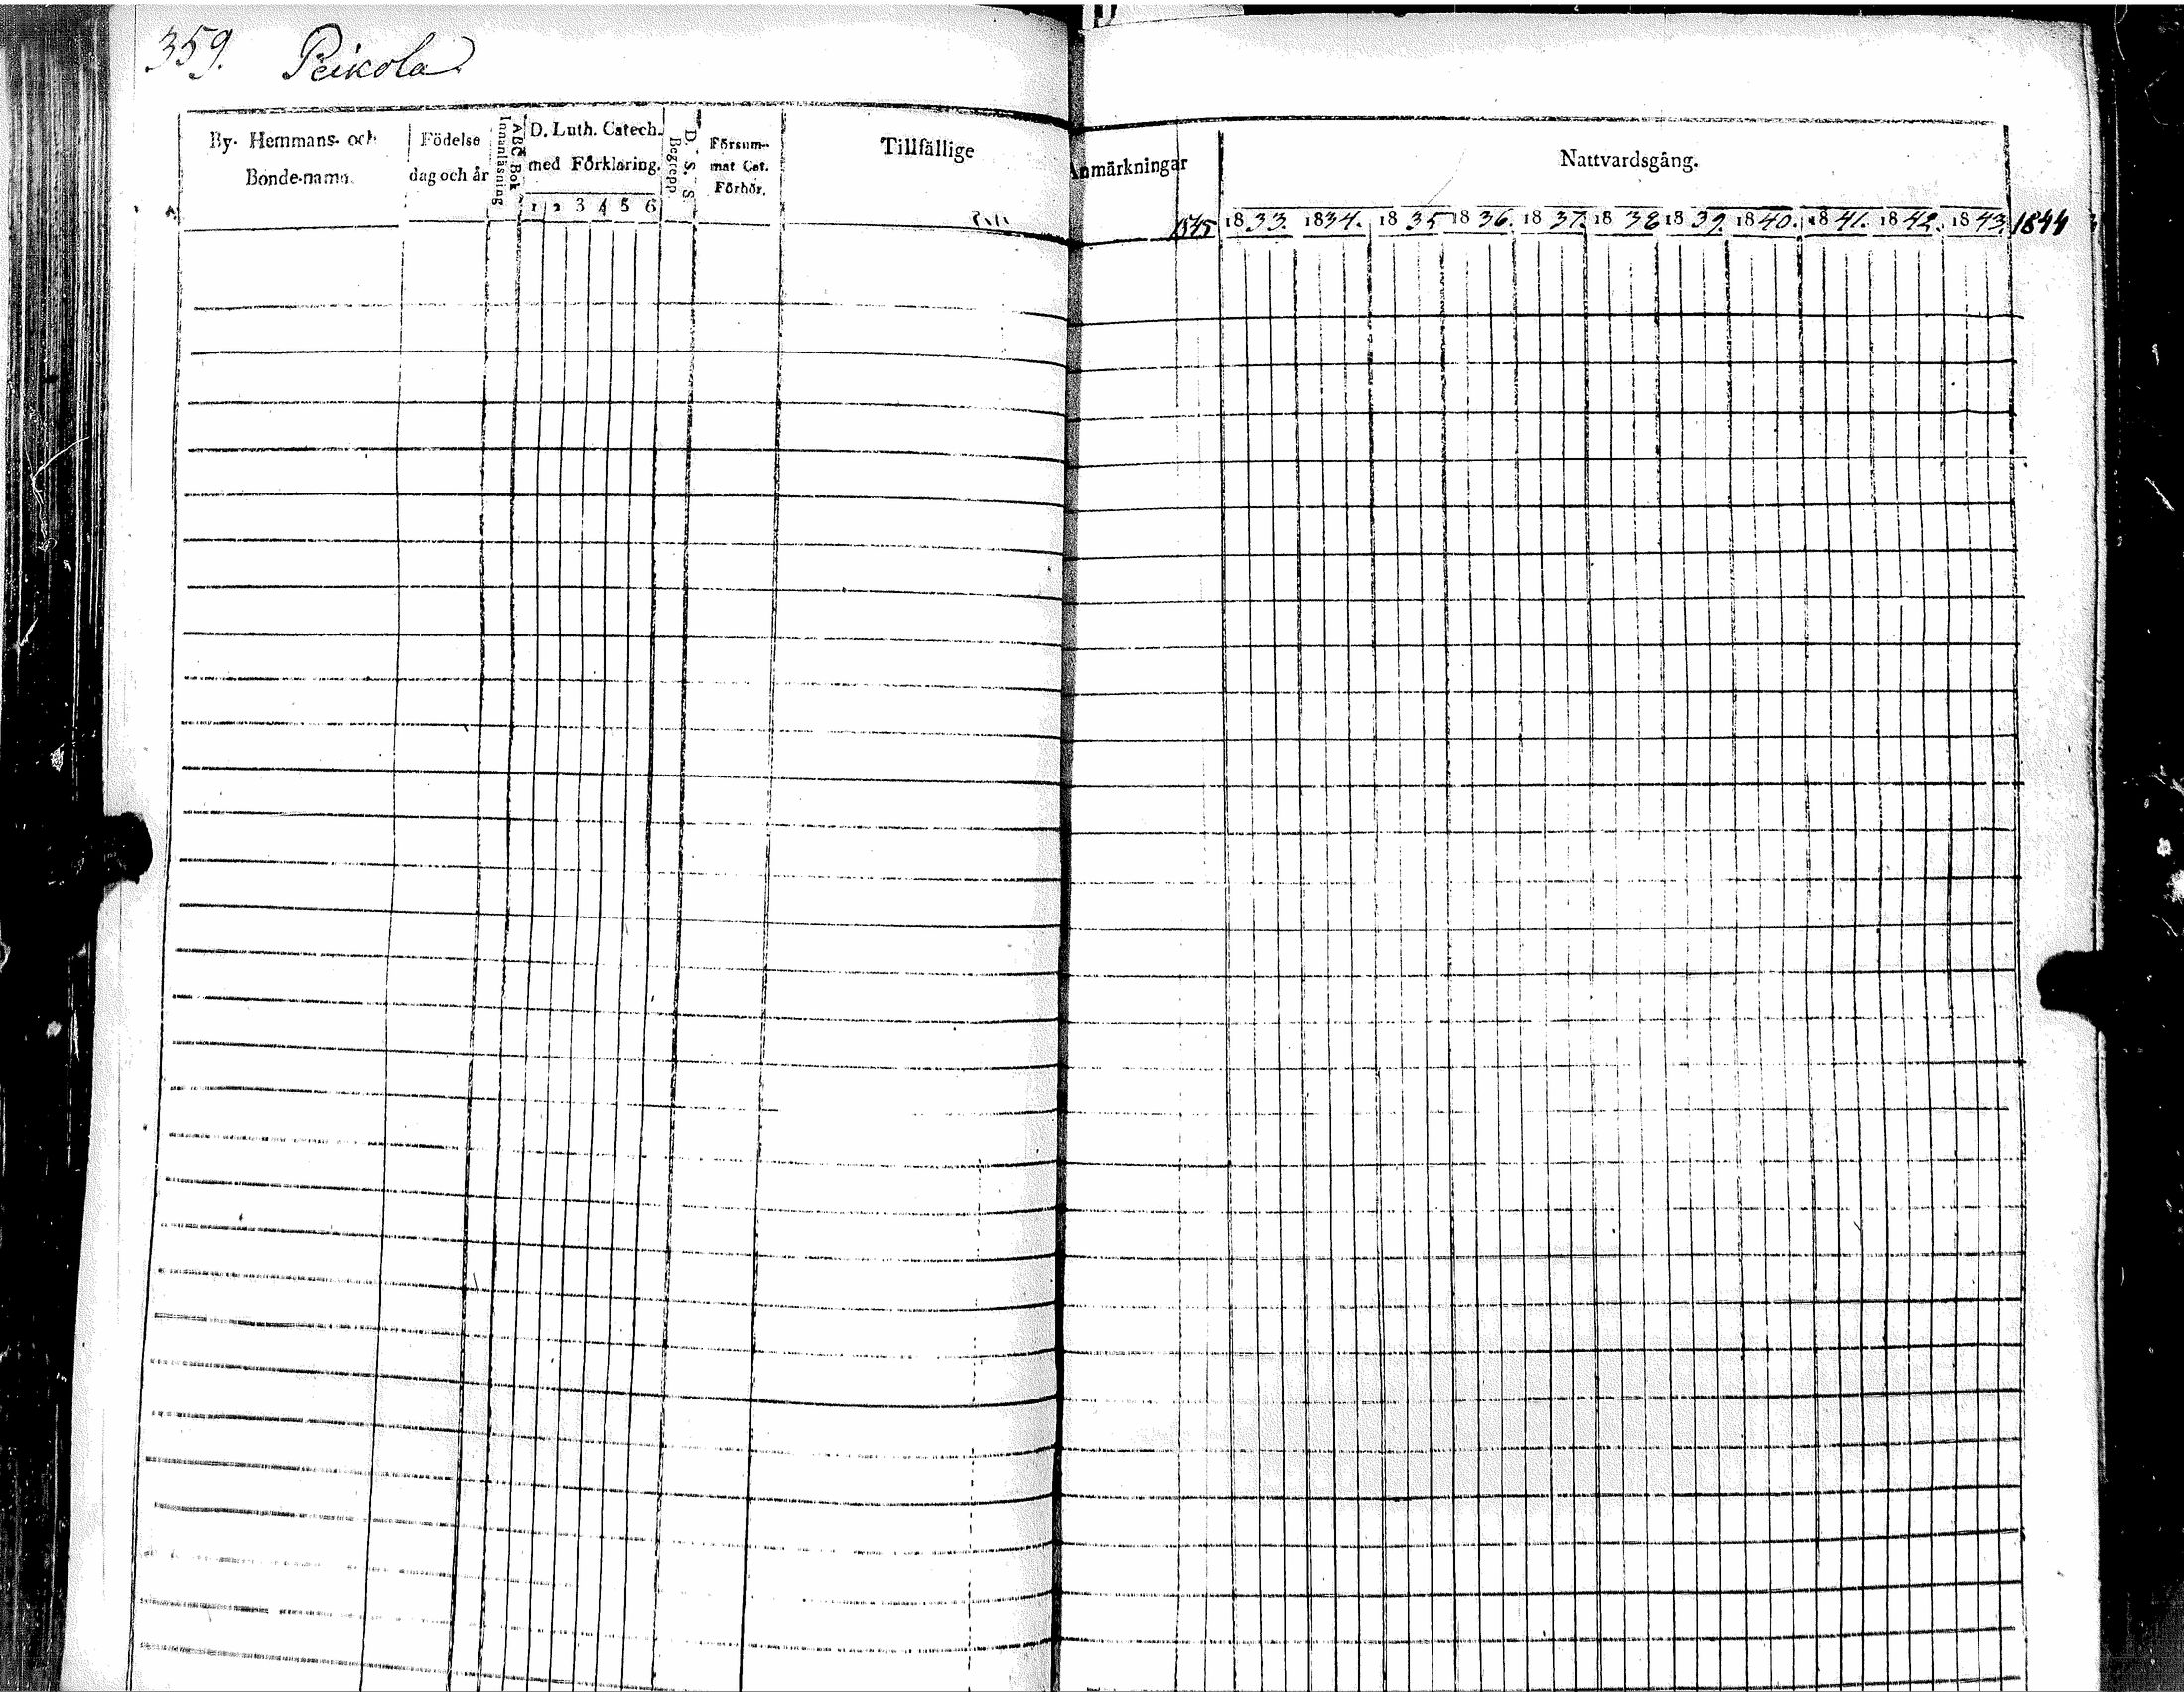 359. Peikola
By- Hemmans- och
Bonde-namn.
Födelse
dag och år
Innanläsning
ABC-Bok
D. Luth. Catech.
med Förklaring.
1 2 3 4 5 6
D. S. S
Begrepp
Försum-
mat Cat.
Förhör.
Tillfällige
Anmärkningar
1845
Nattvardsgång.
1833. 1834. 1835 1836. 1837. 1838 1839. 1840. 1841. 1842. 1843. 1844